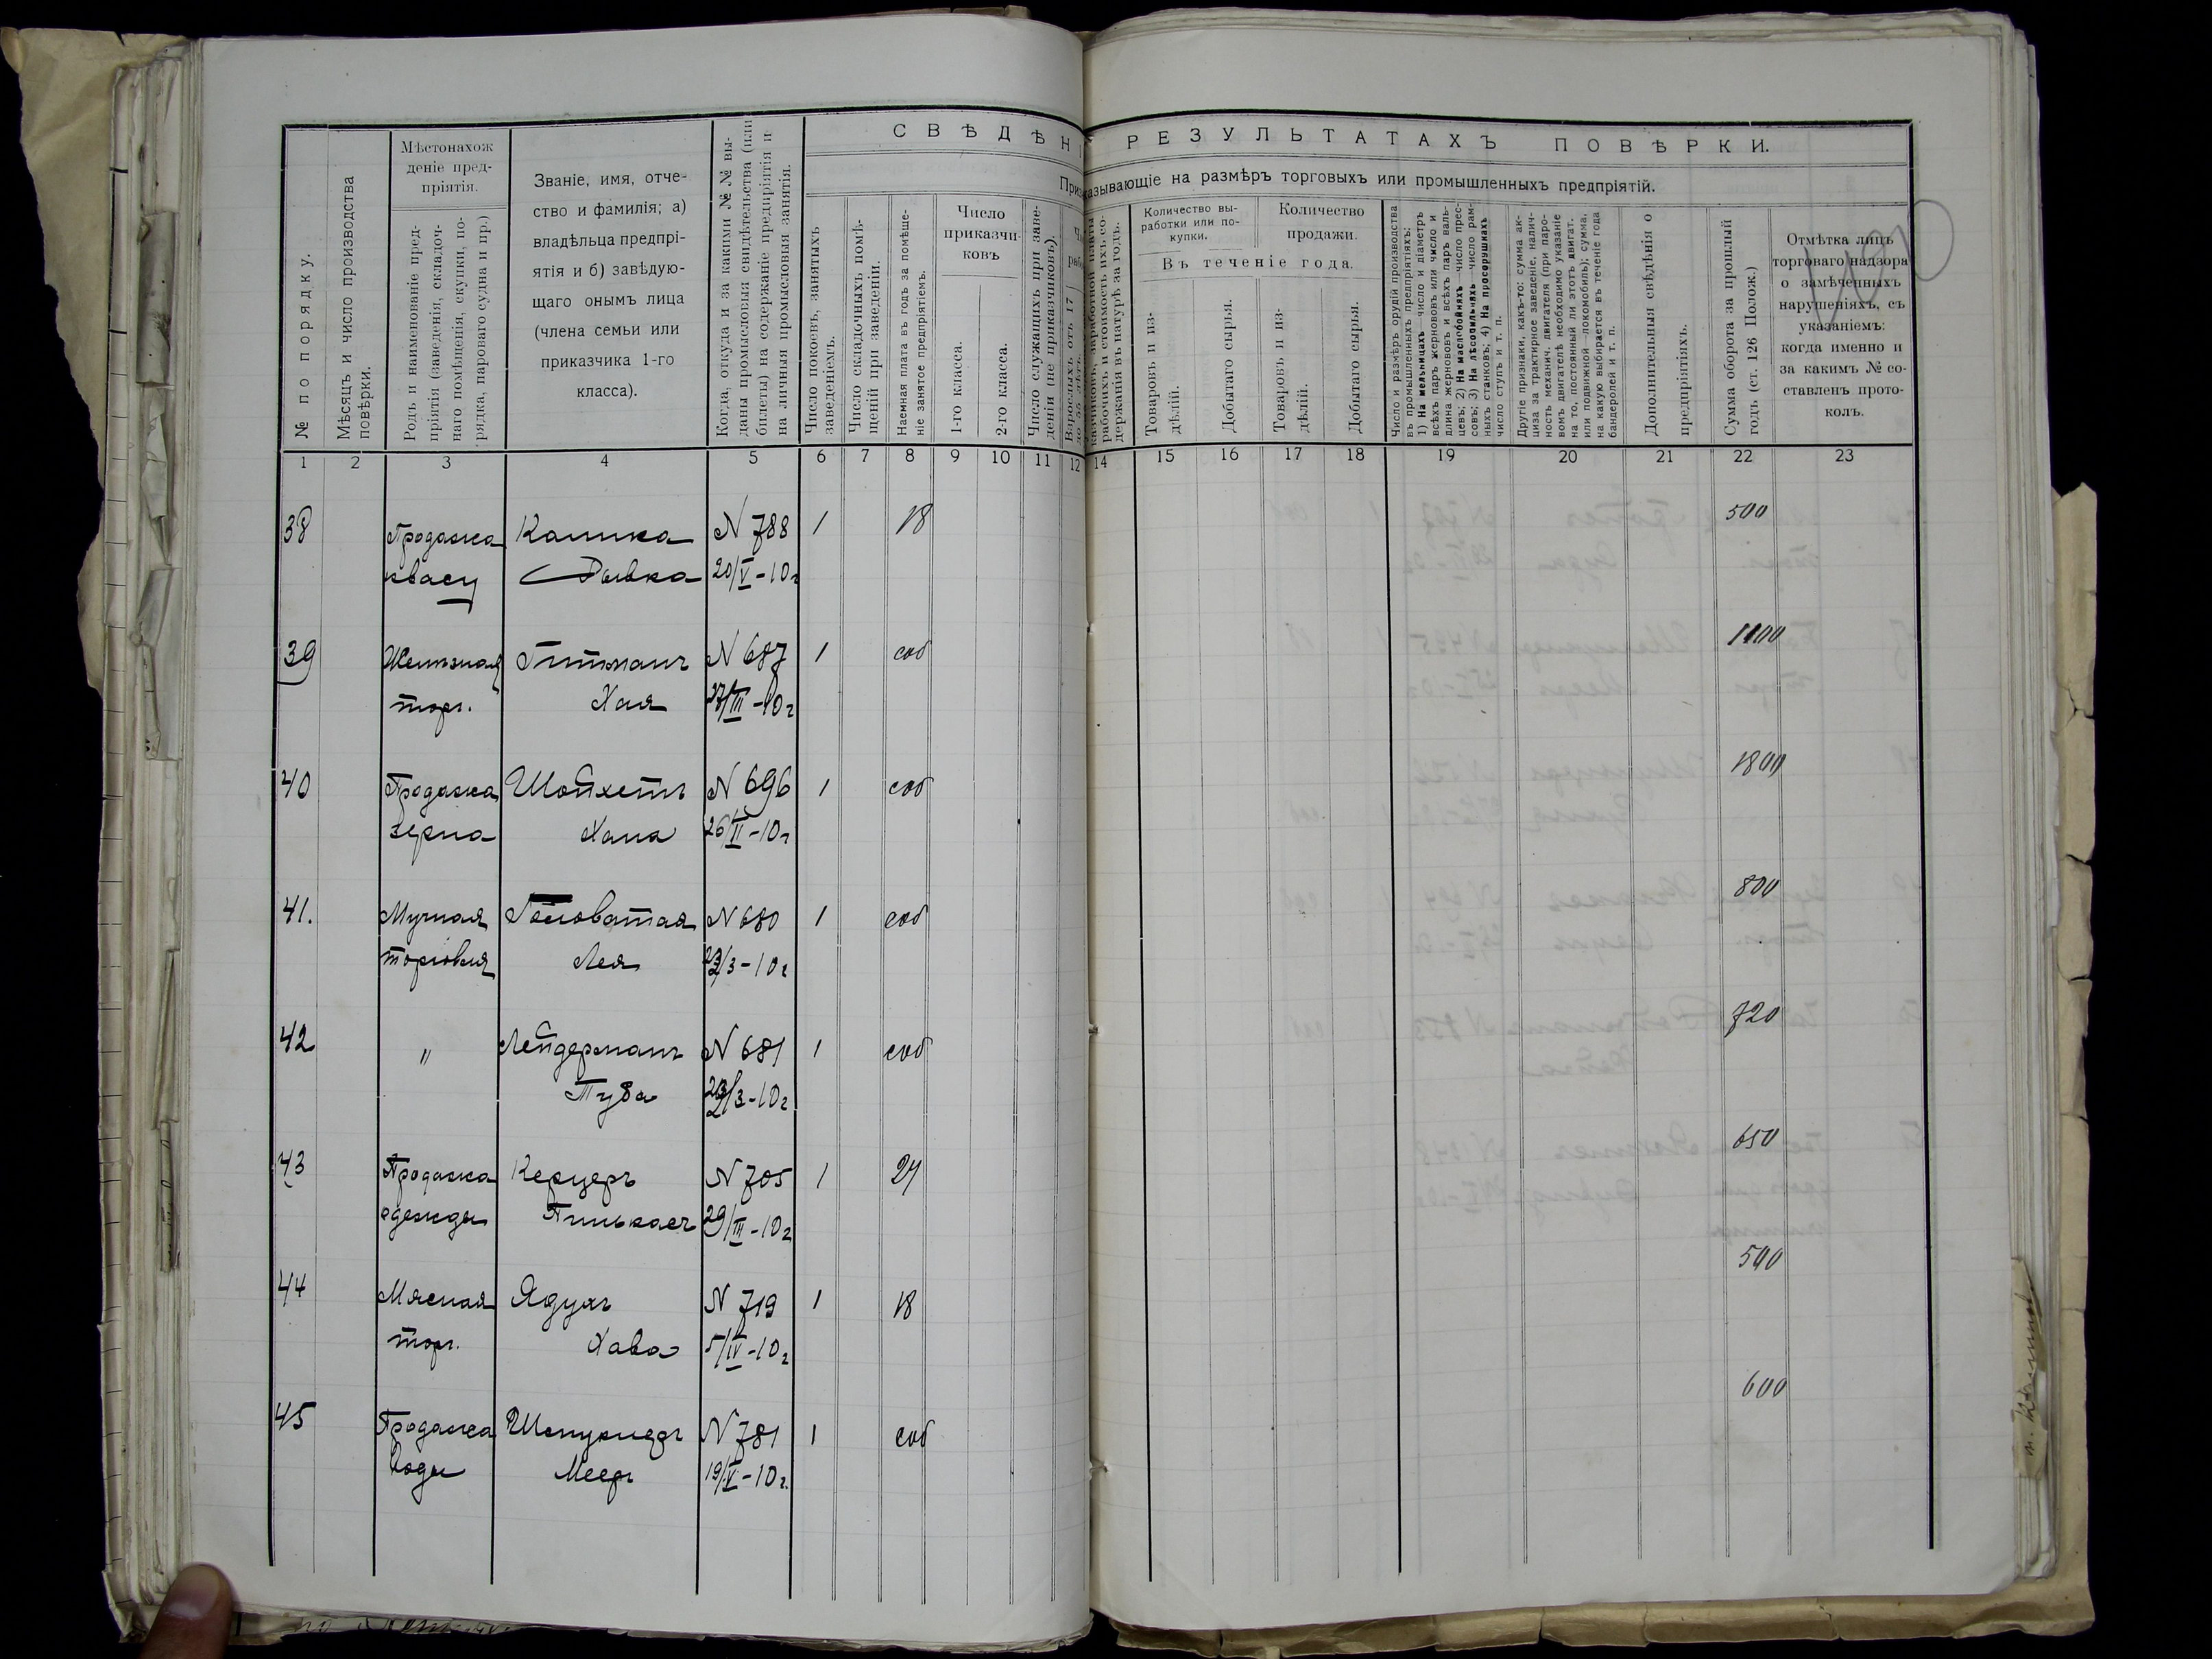 СВѢДѢНІ РЕЗУЛЬТАТАХЪ ПОВѢРКИ.
казывающіе на размѣръ торговыхъ или промышленныхъ предпріятій.
№ по порядку.
Мѣсяцъ и число производства
повѣрки.
Мѣстонахож
деніе пред-
пріятія.
Родъ и наименованіе пред-
пріятія (заведенія, складоч-
наго помѣщенія, скупки, по-
рядка, пароваго судна и пр.)
Званіе, имя, отче-
ство и фамилія; а)
владѣльца предпрі-
ятія и б) завѣдую-
щаго онымъ лица
(члена семьи или
приказчика 1-го
класса).
Когда, откуда и за какими № № вы-
даны промысловыя свидѣтельства (или
билеты) на содержаніе предпріятія и
на личныя промысловыя занятія.
Число покоевъ, занятыхъ
заведеніемъ.
Число складочныхъ помѣ-
щеній при заведеніи.
Наемная плата въ годъ за помѣще-
ніе занятое предпріятіемъ.
Число
приказчи-
ковъ
1-го класса.
2-го класса.
Число служащихъ при заве-
деніи (не приказчиковъ).
Взрослыхъ отъ 17
рабочихъ и стоимость ихъ со-
держанія въ натурѣ за годъ.
Количество вы-
работки или по-
купки.
Количество
продажи.
Въ теченіе года.
Товаровъ и из-
дѣлій.
Добытаго сырья.
Товаровъ и из-
дѣлій.
Добытаго сырья.
Число и размѣръ орудій производства
въ промышленныхъ предпріятіяхъ:
1) На мельницахъ—число и діаметръ
всѣхъ паръ жернововъ или число и
длина жернововъ и всѣхъ паръ валь-
цевъ; 2) На маслобойняхъ—число прес-
совъ; 3) На лѣсопильняхъ—число рам-
ныхъ станковъ; 4) На просорушняхъ
число ступъ и т. п.
Другіе признаки, какъ-то: сумма ак-
циза за трактирное заведеніе, налич-
ность механич. двигателя (при паро-
вомъ двигателѣ необходимо указаніе
на то, постоянный ли этотъ двигат.
или подвижной—локомобиль); сумма,
на какую выбирается въ теченіе года
бандеролей и т. п.
Дополнительныя свѣдѣнія о
предпріятіяхъ.
Сумма оборота за прошлый
годъ (ст. 126 Полож.)
Отмѣтка лицъ
торговаго надзора
о замѣченныхъ
нарушеніяхъ, съ
указаніемъ:
когда именно и
за какимъ № со-
ставленъ прото-
колъ.
1 2 3 4 5 6 7 8 9 10 11 12 14 15 16 17 18 19 20 21 22 23
38 Продажа Калика N 788 1 18 500
квасу Рывка 20/V-10г
39 Желѣзная Гитманъ N 687 1 соб 1100
торг. Хая 27/III-10г
40 Продажа Шойхетъ N 696 1 соб 1800
зерна Хана 26/II-10г
41. Мучная Головатая N 680 1 соб 800
торговля Лея 23/3-10г
42 " Лейдерманъ N 681 1 соб 720
Туба 23/3-10г
43 Продажа Керцеръ N 705 1 24 650
одежды Пинькасъ 29/III-10г
44 Мясная Ядухъ N 719 1 18 500
торг. Хава 5/IV-10г
45 Продажа N 781 1 соб 600
воды Мееръ 19/V-10г.